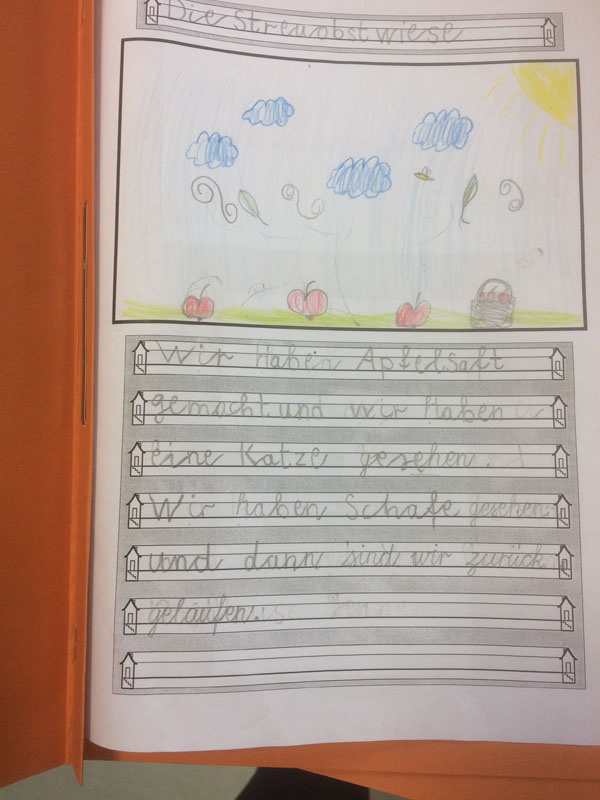 Die Streuobstwiese
Wir Haben Apfelsaft
gemacht und wir Haben
eine Katze gesehen.
Wir haben Schafe gesehen
und dann sind wir zurück
gelaufen.